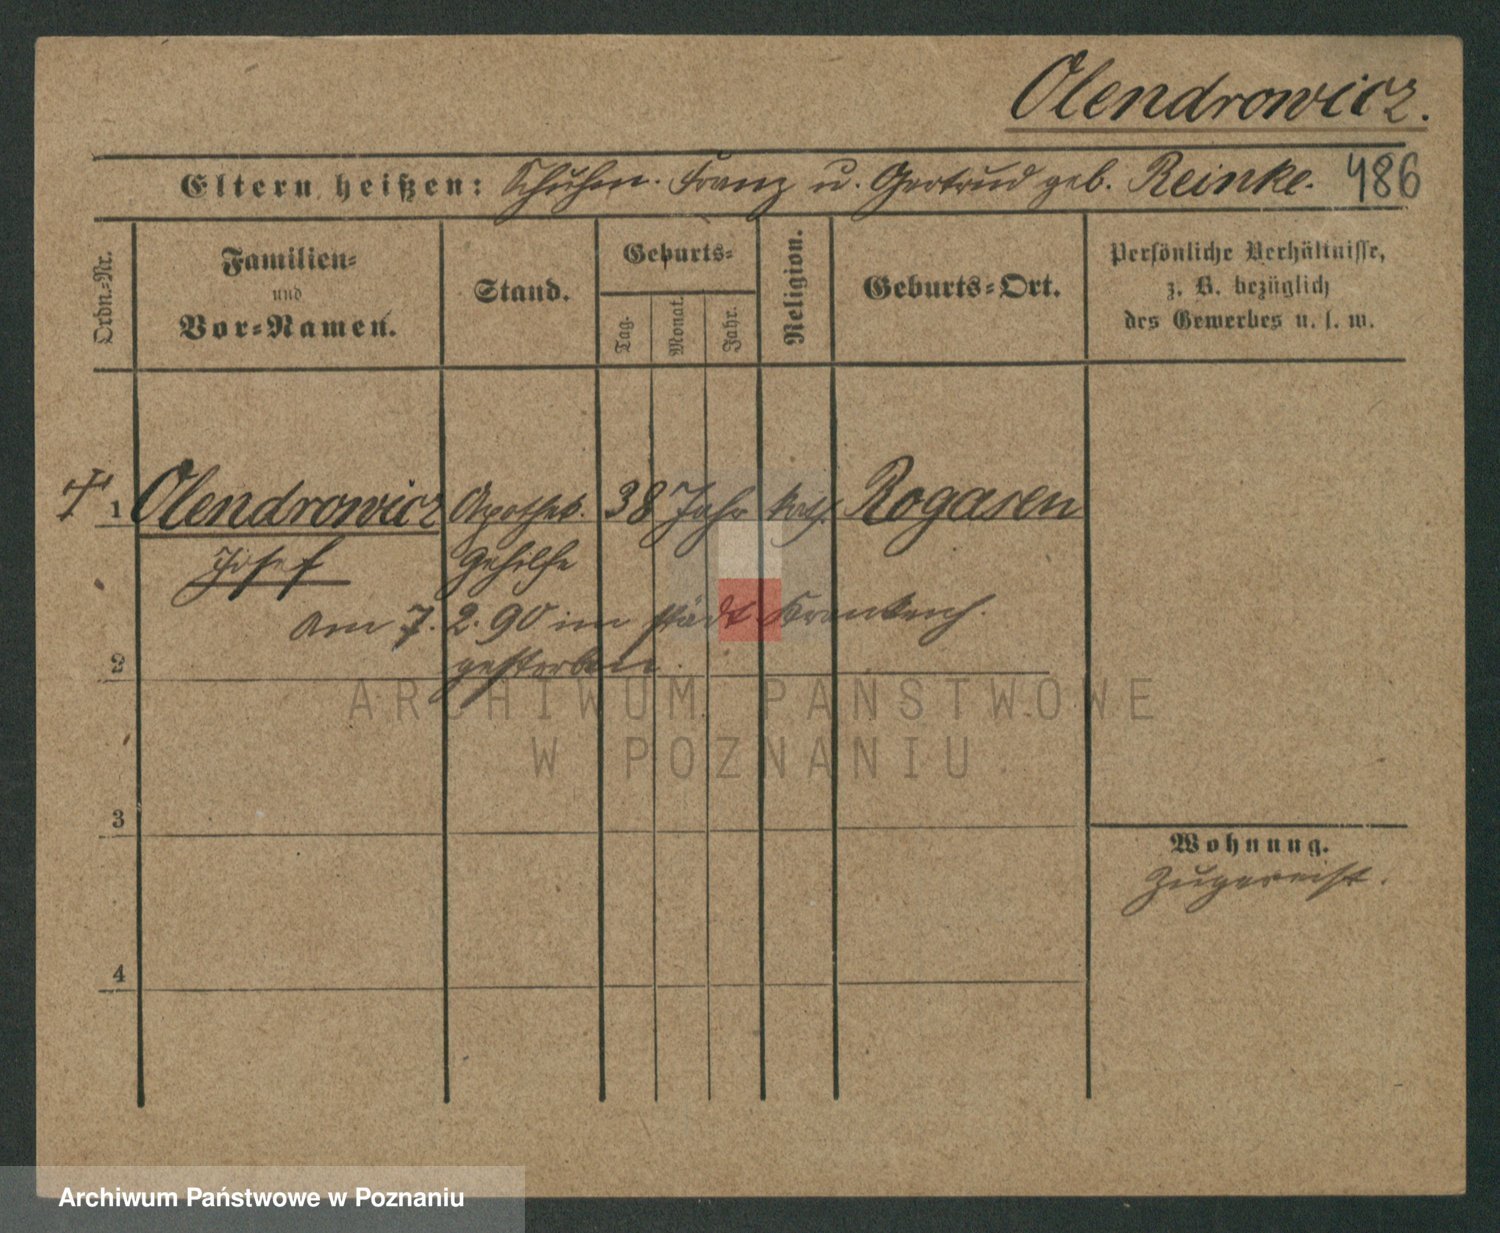 Olendrowicz.
Eltern heißen: Schuhm. Franz u. Gertrud geb. Reinke. 486
Ordn.-Nr.
Familien-
und
Vor-Namen.
Stand.
Geburts-
Tag.
Monat.
Jahr.
Religion.
Geburts-Ort.
Persönliche Verhältnisse,
z. B. bezüglich
des Gewerbes u. s. w.
1 Olendrowicz Apothek. 38 Jahr kath. Rogasen
Josef Gehilfe
am 7. 2. 90 im städt. Krankenh.
gestorben.
2
3
4
Wohnung.
Zugereist.
ARCHIWUM PAŃSTWOWE
W POZNANIU
Archiwum Państwowe w Poznaniu